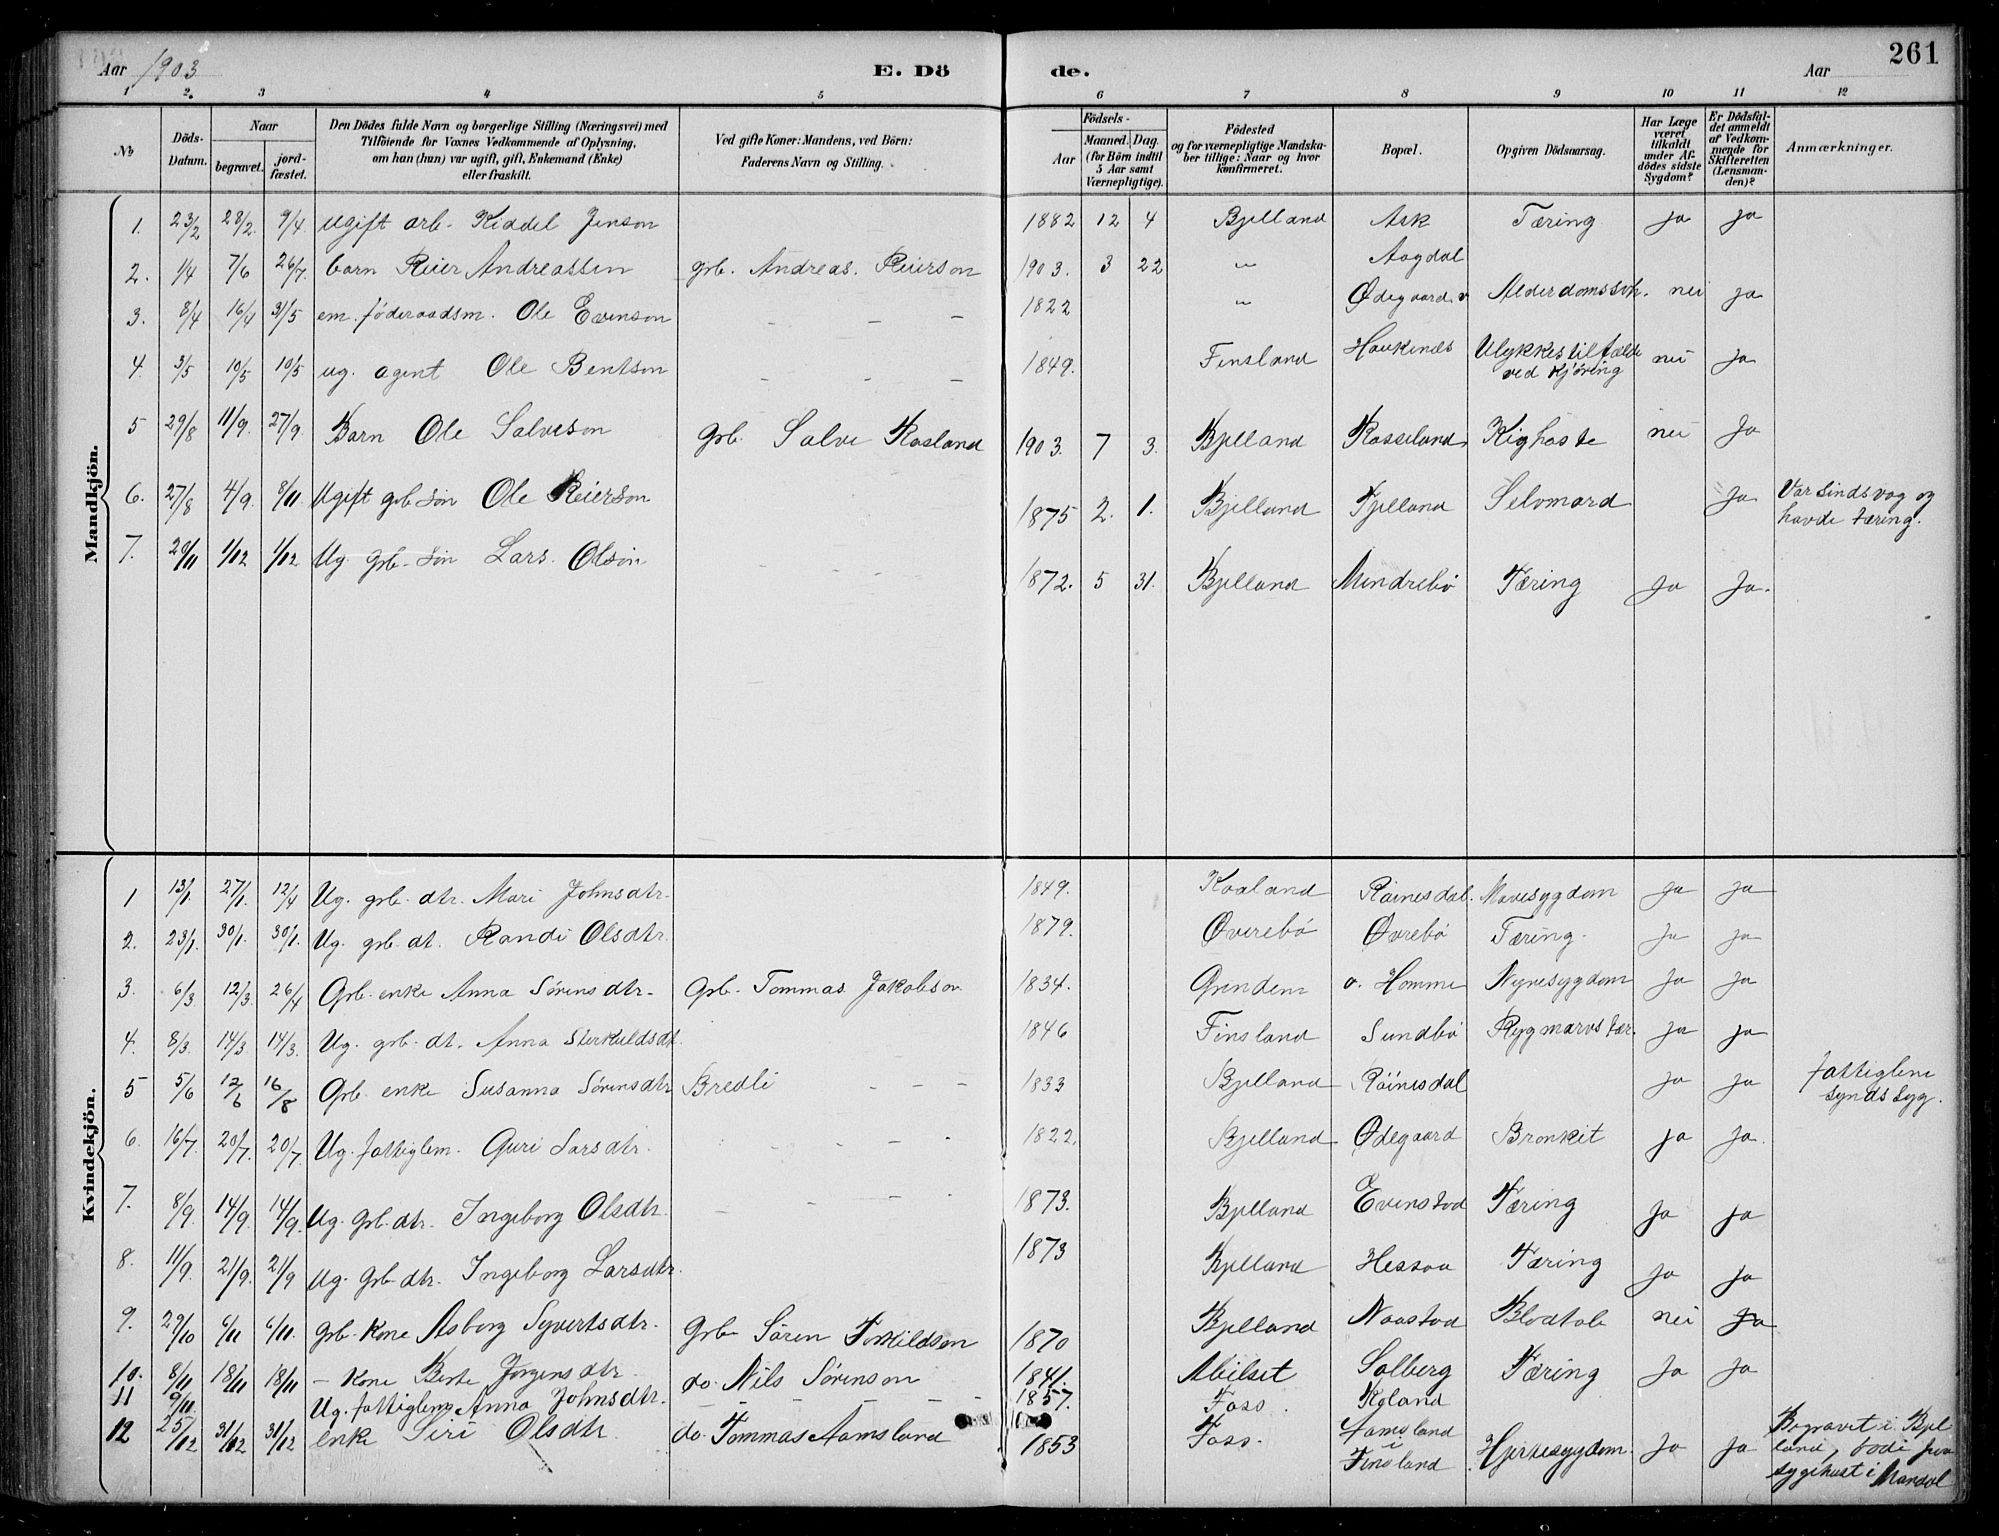 Aar 1903 E. Döde. Aar 261
1 2. 3 4 5 6 7 8 9 10 11 12
No Döds-Datum. Naar begravet. jordfæstet. Den Dödes fulde Navn og borgerlige Stilling (Næringsvei) med Tilföiende for Voxnes Vedkommende af Oplysning, om han (hun) var ugift, gift, Enkemand (Enke) eller fraskilt. Ved gifte Koner: Mandens, ved Börn: Faderens Navn og Stilling. Födsels- Aar Maaned. Dag. (for Börn indtil 5 Aar samt Værnepligtige). Födested og for værnepligtige Mandskaber tillige: Naar og hvor konfirmeret. Bopæl. Opgiven Dödsaarsag. Har Læge været tilkaldt under Afdödes sidste Sygdom? Er Dödsfaldet anmeldt af Vedkommende for Skifteretten (Lensmanden)? Anmærkninger.
Mandkjön.
1. 23/2 28/2. 9/4 ugift arb. Kiddel Jenson 1882 12 4 Bjelland Ask Tæring ja ja
2. 1/4 7/6 26/7. barn Reier Andreassen grb. Andreas. Reierson 1903. 3 22 " Aagdal
3. 8/4 16/4 31/5 em. föderaadsm. Ole Evenson - - - 1822 " Ødegaard. Alderdomssvk. nei ja
4. 3/5 10/5 10/5 ug. agent Ole Bentson - - - 1849. Finsland Haukenes Ulykkestilfælde ved kjøring nei ja
5 29/8 11/9. 27/9. Barn Ole Salveson Grb. Salve Rosland 1903. 7 3. Bjelland Rosseland. Kighoste nei Ja
6. 27/8 4/9. 8/11 Ugift grb søn Ole Reierson 1875 2. 1. Bjelland Fjelland Selvmord Ja Var Sindsvag og havde tæring.
7. 20/11 1/12 1/12 Ug. grb- søn Lars. Olson 1872. 5 31. Bjelland Mindrebø Tæring Ja Ja.
Kvindekjön.
1 13/1. 27/1. 12/4 Ug. grb. dtr. Mari Johnsdtr. 1849. Kaaland Röinesdal. Mavesygdom ja ja
2. 23/1. 30/1. 30/1. Ug. grb. dt. Randi Olsdtr. 1879. Øverebø Øvrebø Tæring. Ja ja
3. 6/3 12/3. 26/4 Grb. enke Anna Sørensdtr- Grb. Tommas Jakobson 1834. Grindem o. Homme Nyresygdom Ja Ja
4. 8/3. 14/3 14/3. Ug. grb. dt. Anna Sterkuldsdt. 1846 Finsland Sundbø Rygmarvstær. Ja Ja
5 5/6 12/6 16/8 Grb. enke Susanna Sørensdtr Bredli - - - 1833 Bjelland Röinesdal ja Ja fattiglem syndssyg.
6. 16/7. 20/7. 20/7. Ug. fattiglem. Guri Larsdtr. 1822. Bjelland Ødegaard Bronkit ja Ja.
7. 8/9. 14/9. 14/9. Ug. Grb. dtr. Ingeborg Olsdtr. - - - 1873. Bjelland Evenstad Tæring Ja Ja
8. 11/9. 21/9. 21/9 Ug. Grb dtr. Ingeborg Larsdtr. 1873 Bjelland Hessaa Tæring Ja Ja
9. 29/10 6/11 6/11. Grb- Kone Asborg Syvertsdtr. Grb Sören Torkildson 1870 Bjelland Naastad Blodtab nei Ja
10. 8/11 18/11 18/11 - Kone Berte Jørgensdtr. do. Nils Sørenson 1841. Abilset Solberg Tæring Ja Ja
11 9/11. Ug. fattiglem Anna Johnsdtr. - - - 1857. Foss. Roland
12 25/12 31/12 31/12 enke Siri Olsdtr do. Tommas Aamsland 1853 Foss. Aamsland i Finsland Hjertesygdom. Ja Ja Begravet i Bjelland, död paa sygehuset i Mandal